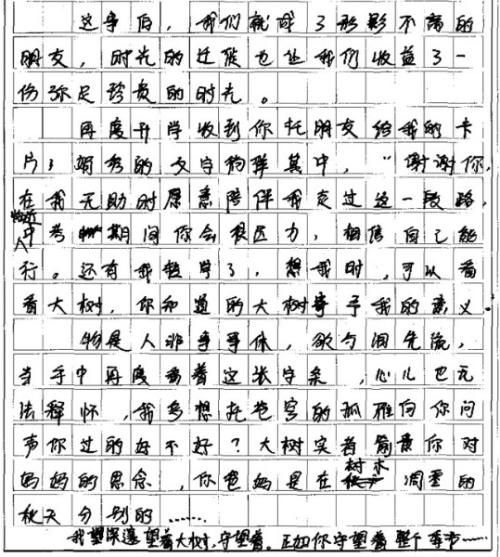 这事后，我们就成了形影不离的
朋友，时光的迁徙也让我们收益了一
份弥足珍贵的时光。
再度开学收到你托朋友给我的卡
片；娟秀的文字徜徉其中，“谢谢你，
在我无助时愿意陪伴我走过这一段路，
临近中考期间你会很压力，相信自己能
行。还有我转学了，想我时，可以看
看大树，你知道的大树寄予我的意义。
物是人非事事休，欲与泪先流，
当手中再度看着这张字条，心儿也无
法释怀，我多想托苍穹的孤雁向你问
声你过的好不好？大树实着寄最你对
妈妈的思念，你爸妈是在树木凋零的
秋天分别的……
我望深邃望着大树，守望着。正如你守望着整个季节……